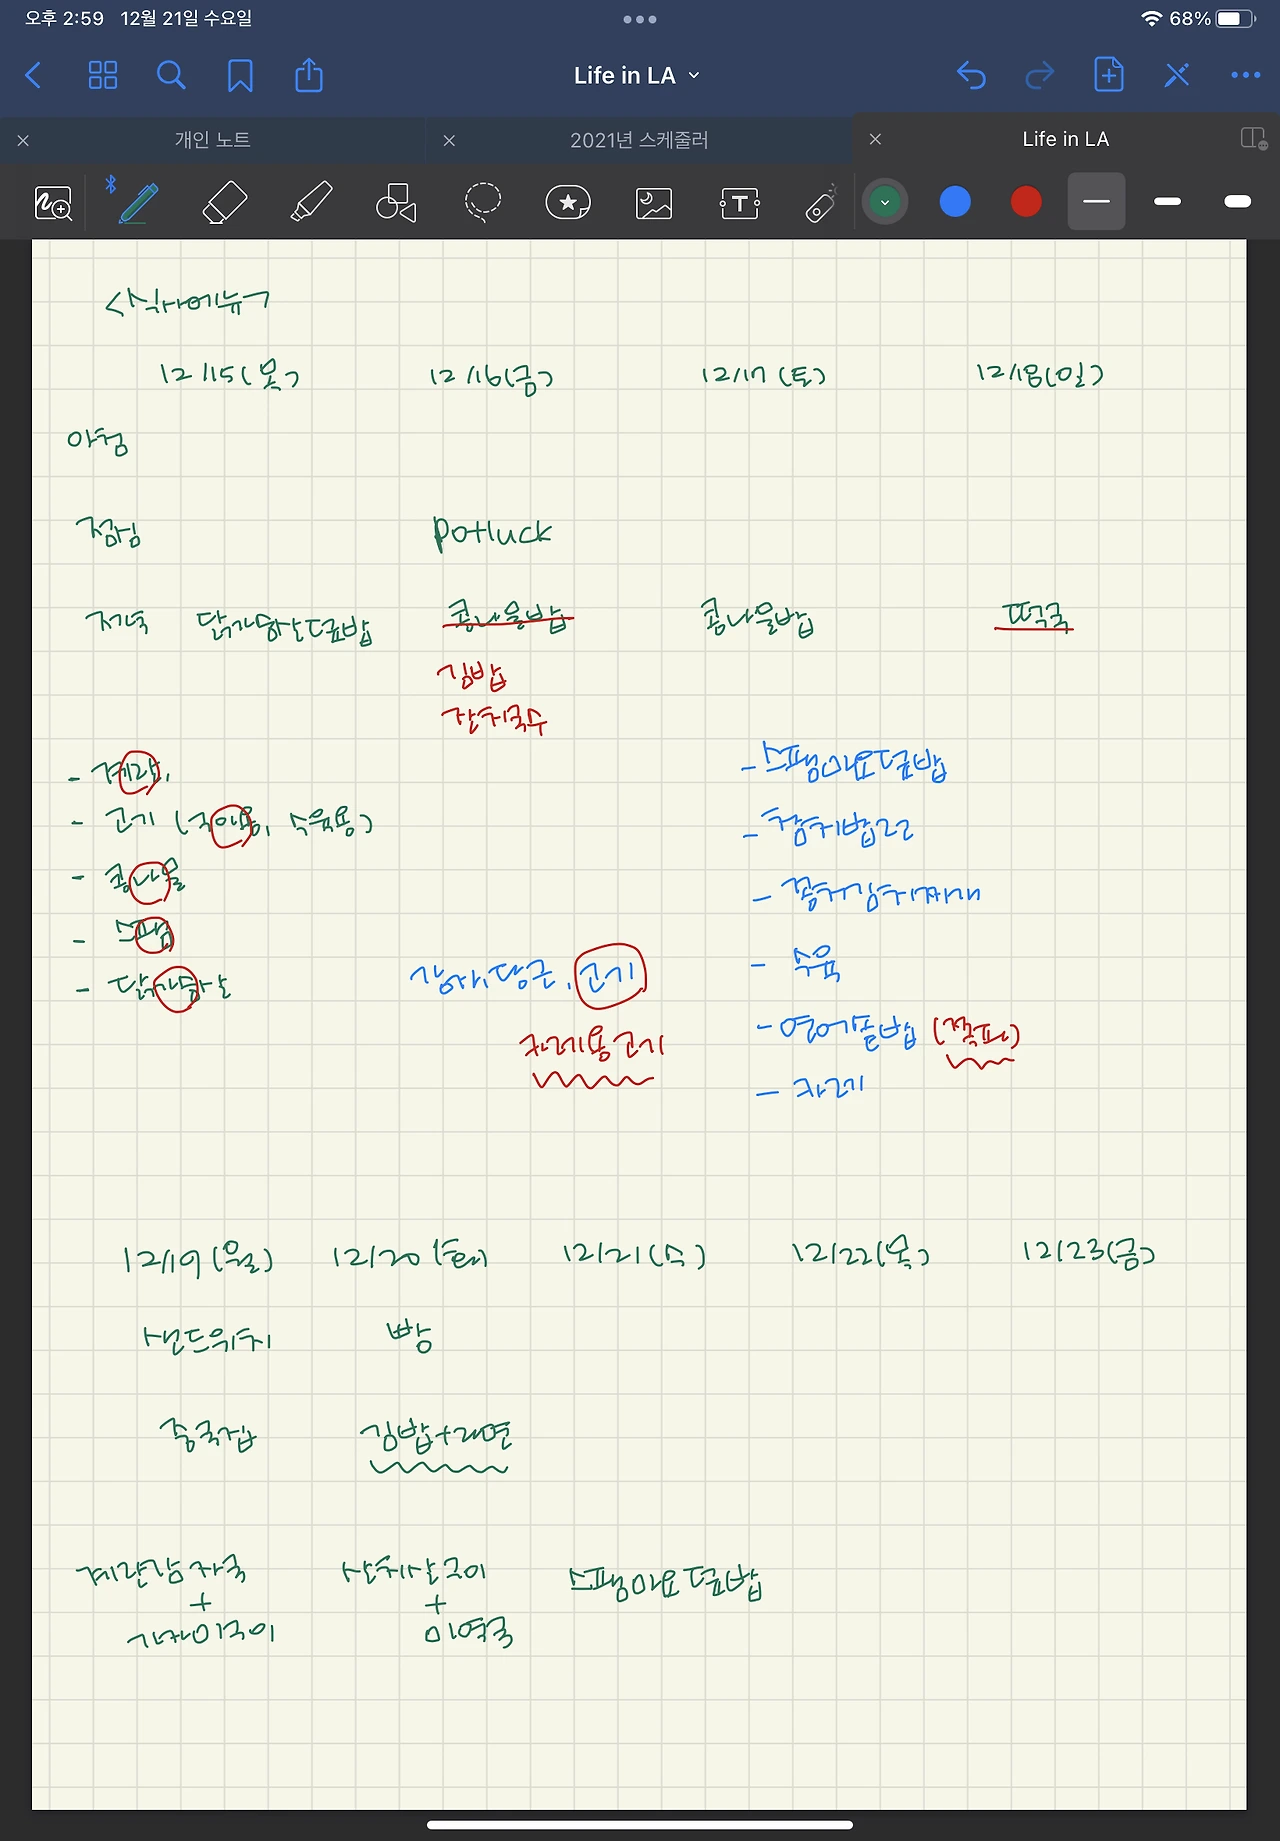 오후 2:59 12월 21일 수요일 68%
Life in LA
개인 노트 2021년 스케줄러 Life in LA
T
<식사메뉴>
12/15(목) 12/16(금) 12/17(토) 12/18(일)
아침
점심 potluck
저녁 닭가슴살덮밥 콩나물밥 콩나물밥 떡국
김밥
잔치국수
- 계란,
- 고기 (국거리용, 수육용)
- 콩나물
- 스팸
- 닭가슴살
감자, 당근, 고기
카레용고기
- 스팸마요덮밥
- 참치밥고로
- 꽁치김치찌개
- 수육
- 연어솥밥 (쪽파)
- 카레
12/19(월) 12/20(화) 12/21(수) 12/22(목) 12/23(금)
샌드위치 빵
중국집 김밥+라면
계란감자국 삼치살구이 스팸마요덮밥
+ +
가자미구이 미역국